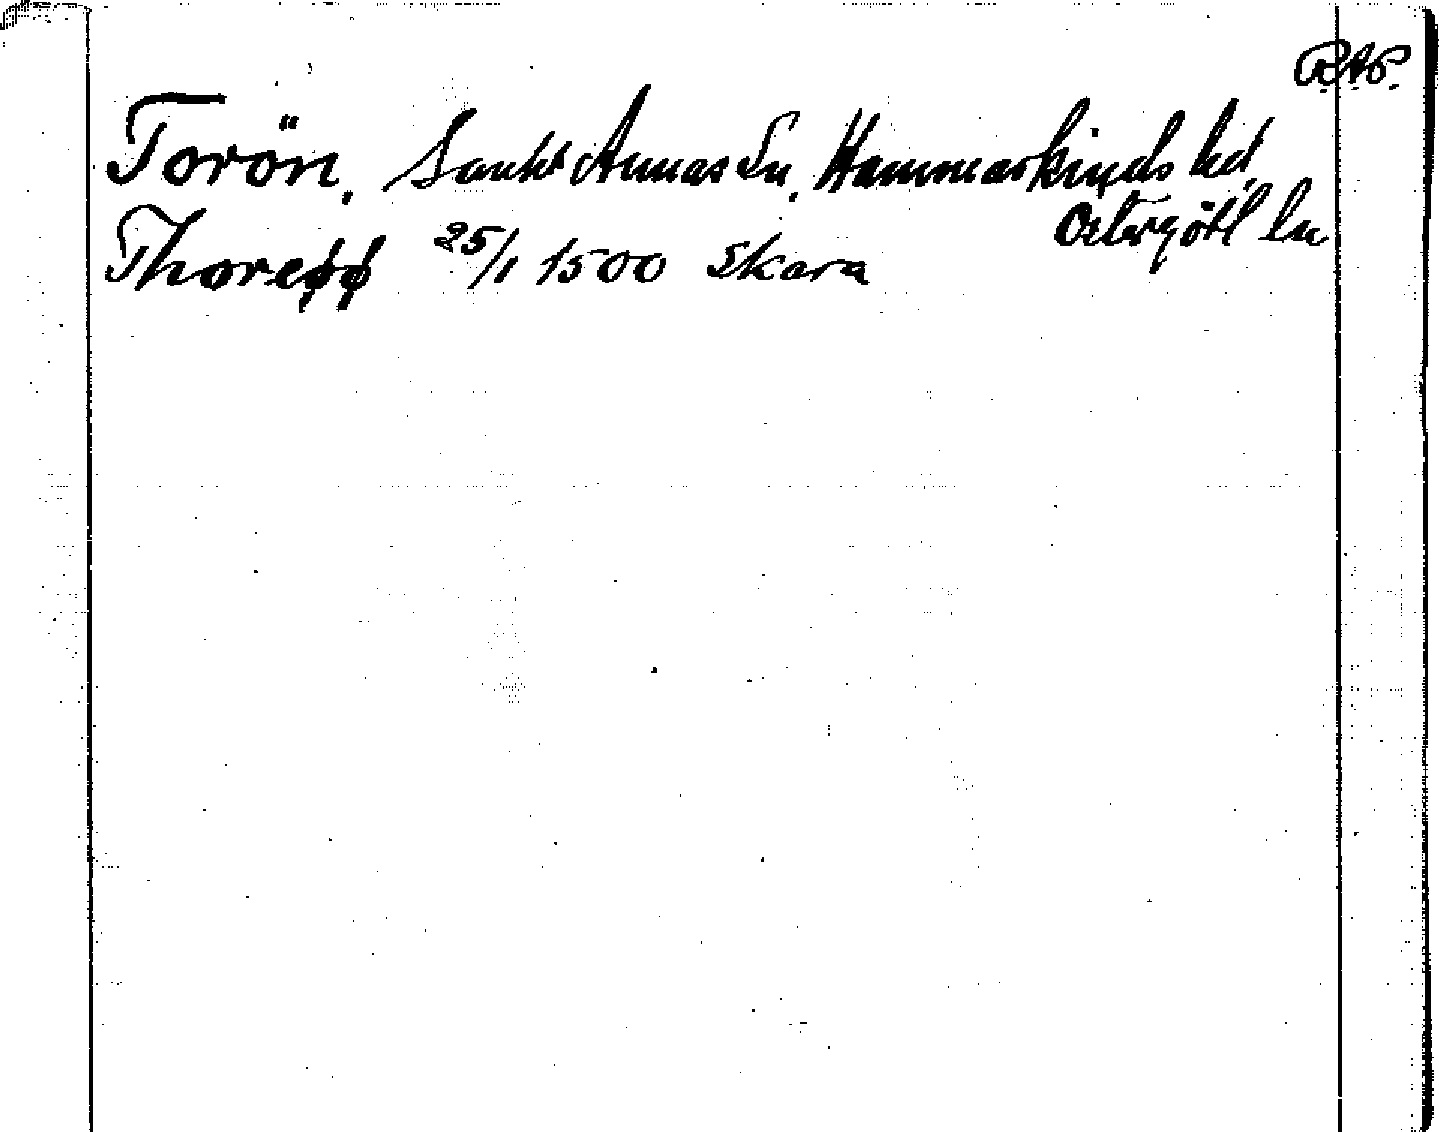 RAP.
Torön, Sankt Annas Sn, Hammarkinds hd,
Östergötl ln
Thoreøø 25/1 1500 Skara